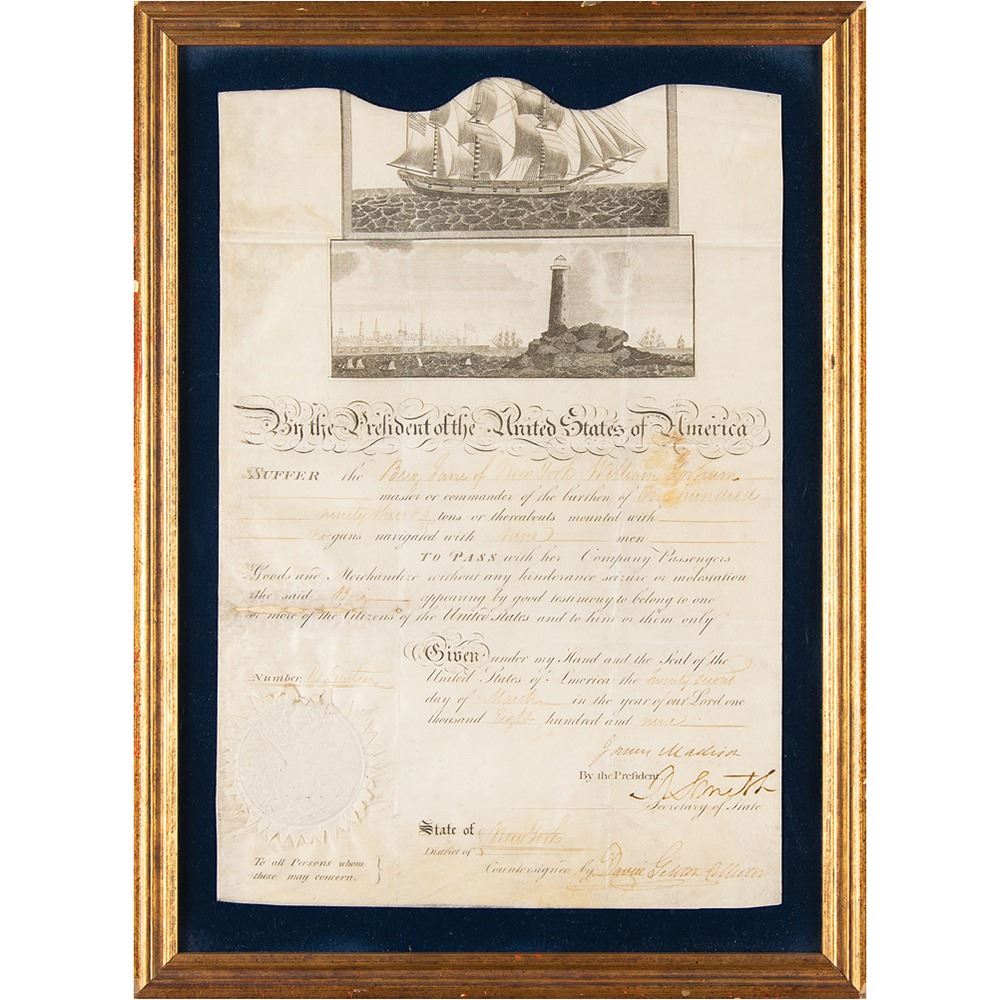 By the President of the United States of America
SUFFER the Brig Jane of New York William
master or commander of the burthen of One hundred
ninety three tons or thereabouts mounted with
no guns navigated with men
TO PASS with her Company Passengers
Goods and Merchandize without any hinderance seizure or molestation
the said Brig appearing by good testimony to belong to one
or more of the Citizens of the United States and to him or them only
Given under my Hand and the Seal of the
United States of America the twenty second
day of March in the year of our Lord one
thousand eight hundred and nine
Number
James Madison
By the President
R Smith
Secretary of State
State of New York
District of
Countersigned by David Gelston Collector
To all Persons whom
these may concern.